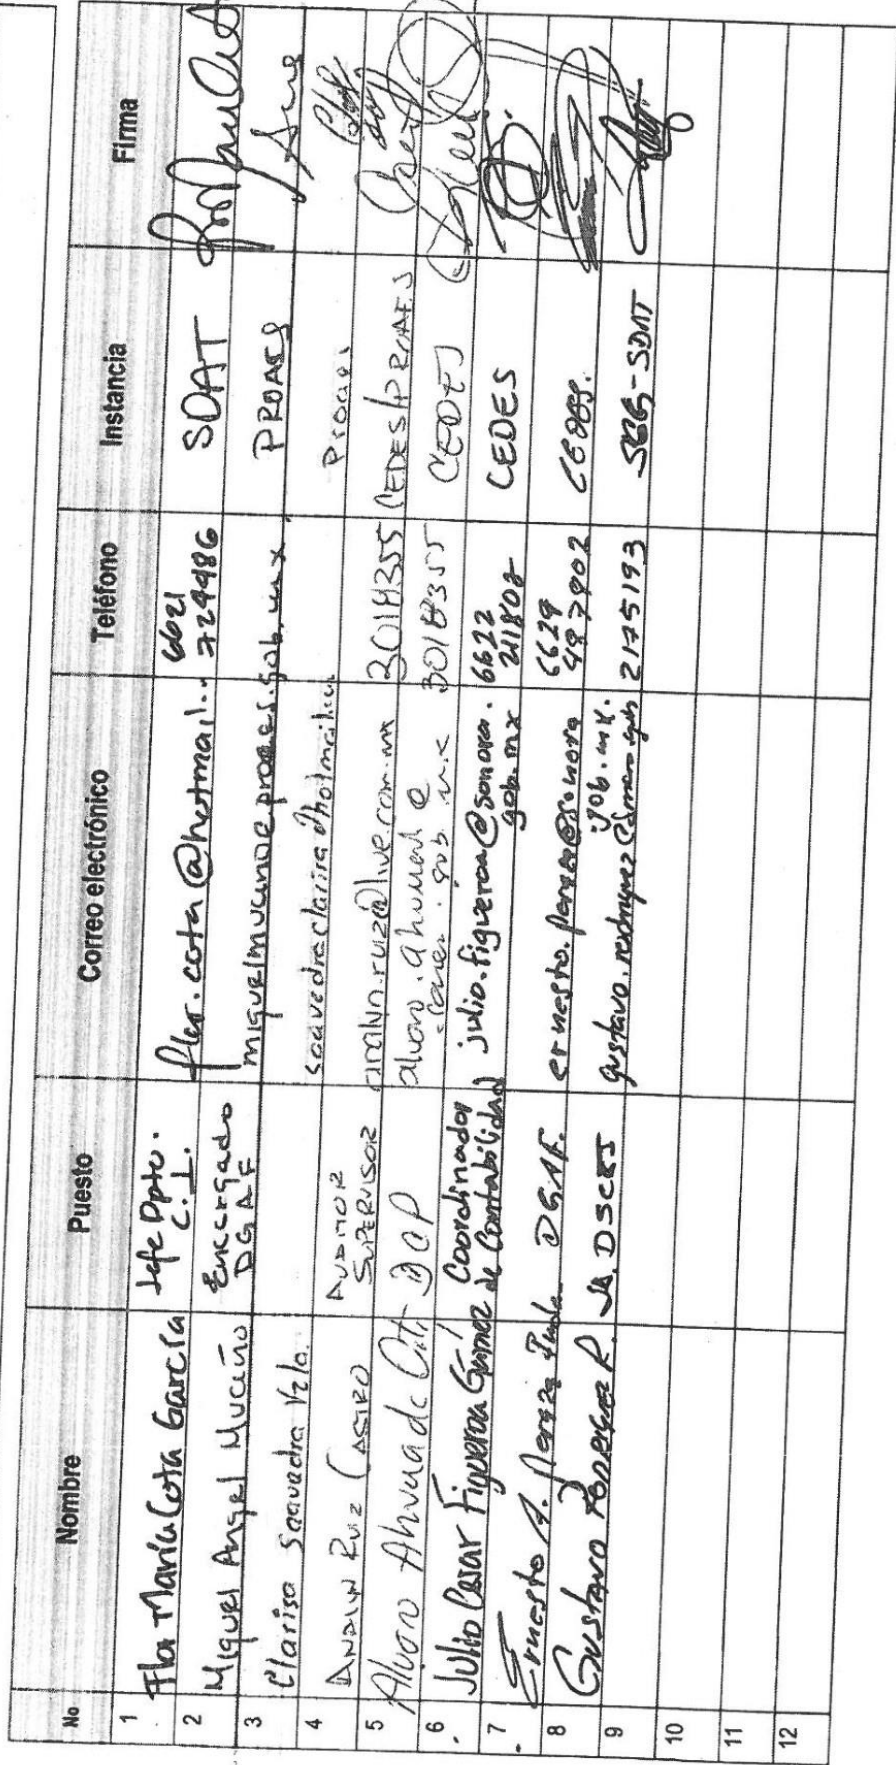 No Nombre Puesto Correo electrónico Teléfono Instancia Firma
1 Flor María Cota García Jefe Dpto. C.I. flor.cota@hotmail... 6621 724486 SDAT
2 Miguel Angel Muciño Encargado DGAF miguelmucino@proaes.gob.mx PROAES
3 Clarisa Saavedra Vela. saavedraclarisa@hotmail.com Proaes
4 ANALYN RUIZ CASTRO AUDITOR SUPERVISOR analyn.ruiz@live.com.mx 3018355 CEDES/PROAES
5 Alvaro Ahumada DOP alvaro.ahumada@ gob.mx 3018355 CEDES
6 Julio Cesar Figueroa Gámez Coordinador de Contabilidad julio.figueroa@sonora.gob.mx 6622 211802 CEDES
7 Ernesto A. DGAF. 6629 CEDES.
8 GUSTAVO gustavo. 2175193
9
10
11
12